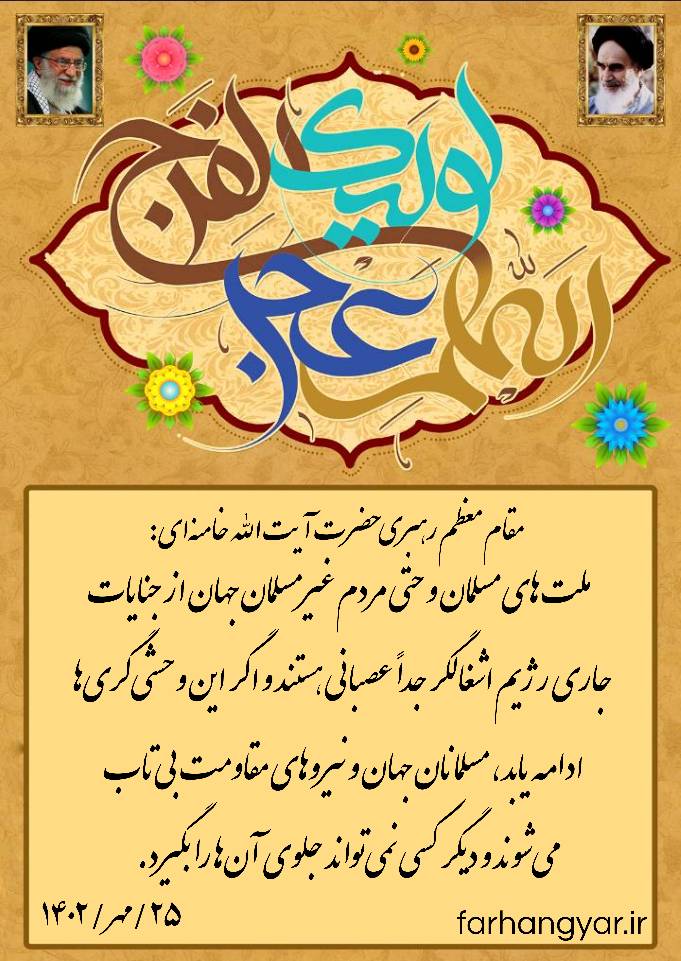 اللهم عجل لولیک الفرج
مقام معظم رهبری حضرت آیت الله خامنه‌ای:
ملت های مسلمان و حتی مردم غیرمسلمان جهان از جنایات
جاری رژیم اشغالگر جداً عصبانی هستند و اگر این وحشی‌گری‌ها
ادامه یابد، مسلمانان جهان و نیروهای مقاومت بی تاب
می‌شوند و دیگر کسی نمی‌تواند جلوی آن‌ها را بگیرد.
۲۵/مهر/۱۴۰۲
farhangyar.ir